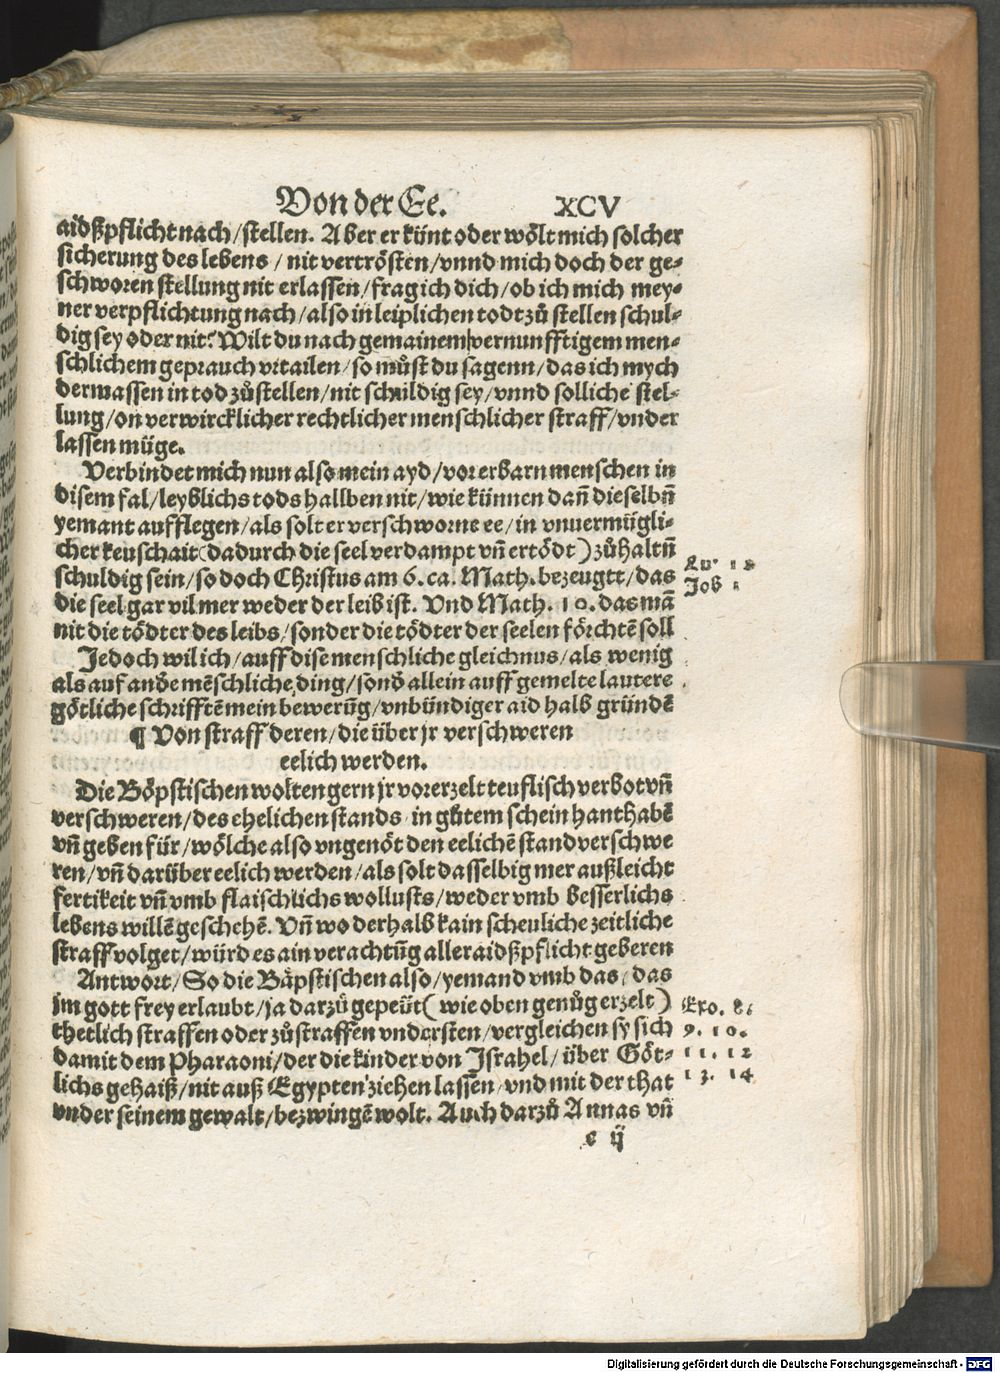 Von der Ee. XCV
aidßpflicht nach/stellen. Aber er künt oder wölt mich solcher
sicherung des lebens / nit vertrösten/vnnd mich doch der ge⸗
schworen stellung nit erlassen/frag ich dich/ob ich mich mey⸗
ner verpflichtung nach/also in leiplichen todt zů stellen schul⸗
dig sey oder nit? Wilt du nach gemainem vernunfftigem men⸗
schlichem geprauch vrtailen/so můst du sagenn/das ich mych
dermassen in tod zůstellen/nit schuldig sey/vnnd solliche stel⸗
lung/on verwircklicher rechtlicher menschlicher straff/vnder
lassen müge.
Verbindet mich nun also mein ayd/vor erbarn menschen in
disem fal/leyblichs tods hallben nit/wie künnen dañ dieselbñ
yemant aufflegen/als solt er verschworne ee/in vnuermügli⸗
cher keuschait(dadurch die seel verdampt vñ ertödt)zůhaltñ
schuldig sein/so doch Christus am 6.ca. Math.bezeugtt/das
die seel gar vil mer weder der leib ist. Vnd Math. 10.das mã
nit die tödter des leibs/sonder die tödter der seelen förchtẽ soll
Lu. 12
Job
Jedoch wil ich/auff dise menschliche gleichnus/als wenig
als auf anđe mẽschliche ding/sonđ allein auff gemelte lautere
götliche schrifftẽ mein bewerũg/vnbündiger aid halb gründẽ
¶ Von straff deren/die über jr verschweren
eelich werden.
Die Böpstischen wolten gern jr vorerzelt teuflisch verbot vñ
verschweren/des ehelichen stands/in gůtem schein hanthabẽ
vñ geben für/wölche also vngenöt den eelichẽ stand verschwe
ren/vñ darüber eelich werden/als solt dasselbig mer auß leicht
fertikeit vñ vmb flaischlichs wollusts/weder vmb besserlichs
lebens willẽ geschehẽ. Vñ wo derhalb kain scheuliche zeitliche
straff volget/würd es ain verachtũg aller aidßpflicht geberen
Antwort/So die Bäpstischen also/yemand vmb das/das
jm gott frey erlaubt/ja darzů gepeüt(wie oben genůg erzelt)
thetlich straffen oder zůstraffen vndersten/vergleichen sy sich
damit dem Pharaoni/der die kinder von Israhel/über Göt⸗
lichs gehaiß/nit auß Egypten ziehen lassen/vnd mit der that
vnder seinem gewalt/bezwingẽ wolt. Auch darzů Annas vñ
Exo. 8.
9. 10.
11. 12
13. 14
c ij
Digitalisierung gefördert durch die Deutsche Forschungsgemeinschaft - DFG